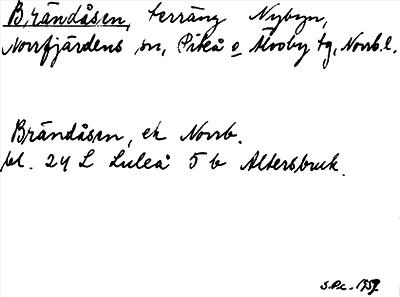 Brändåsen, terräng Nybyn,
Norrfjärdens sn, Piteå o Älvsby tg, Norrb. l.
Brändåsen, ek Norrb.
bl. 24 L Luleå 5 b Altersbruk.